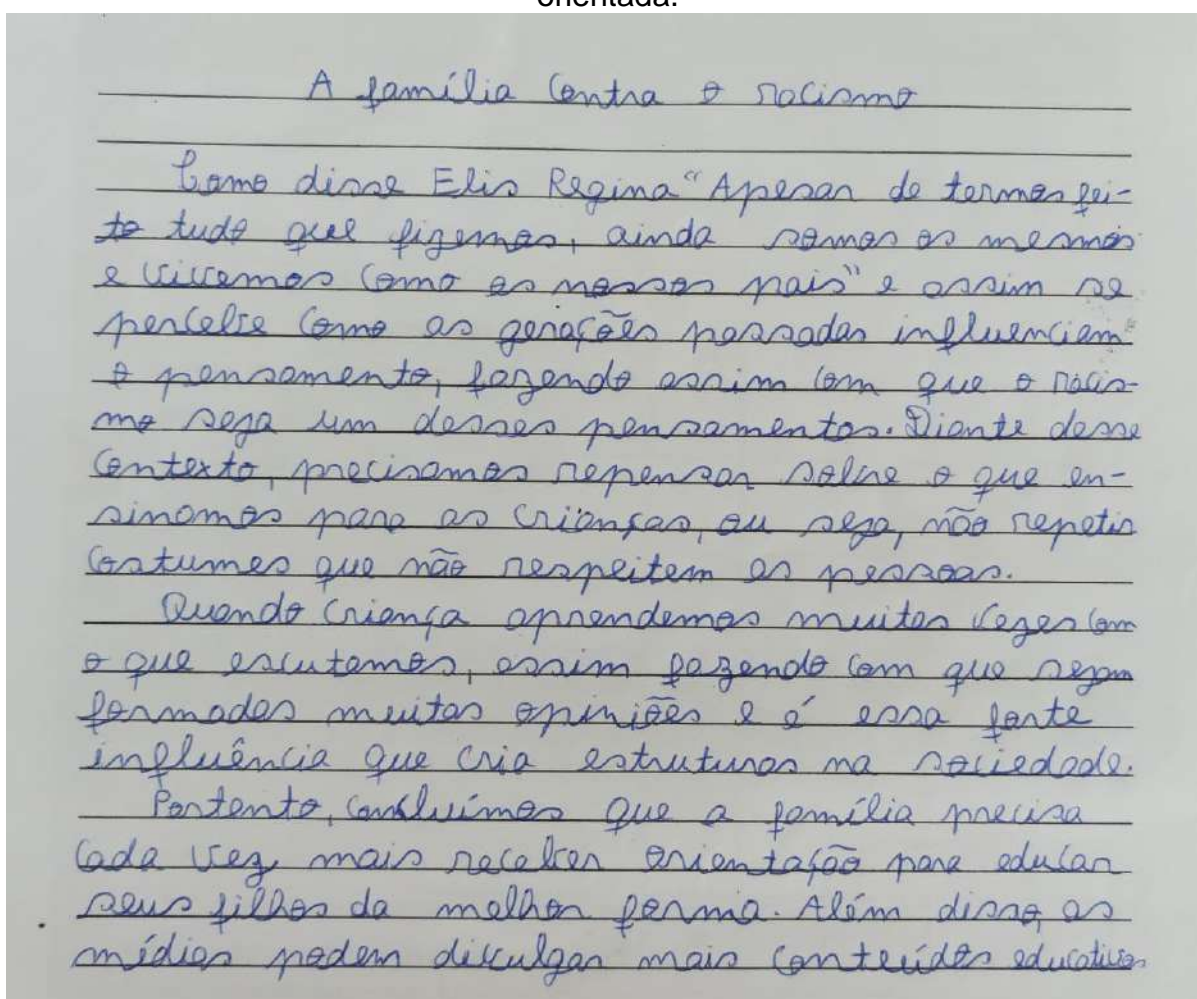 orientada.
A família contra o racismo
Como disse Elis Regina "Apesar de termos fei-
to tudo que fizemos, ainda somos os mesmos
e vivemos como os nossos pais" e assim se
percebe como as gerações passadas influenciam
o pensamento, fazendo assim com que o racis-
mo seja um desses pensamentos. Diante desse
contexto, precisamos repensar sobre o que en-
sinamos para as crianças, ou seja, não repetir
costumes que não respeitem as pessoas.
Quando criança aprendemos muitas vezes com
o que escutamos, assim fazendo com que sejam
formados muitas opiniões e é essa forte
influência que cria estruturas na sociedade.
Portanto, concluímos que a família precisa
cada vez mais receber orientação para educar
seus filhos da melhor forma. Além disso, as
mídias podem divulgar mais conteúdos educativos